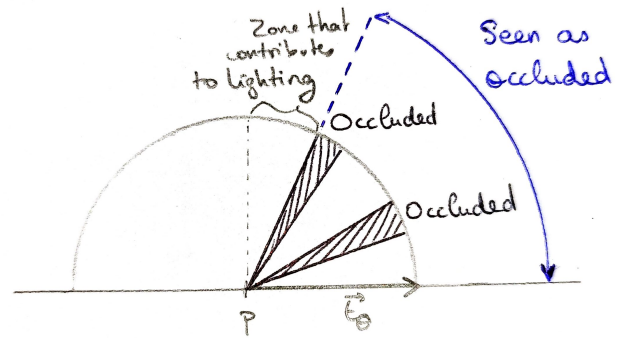 Zone that
contributes
to lighting
Seen as
occluded
Occluded
Occluded
P
t⃗θ